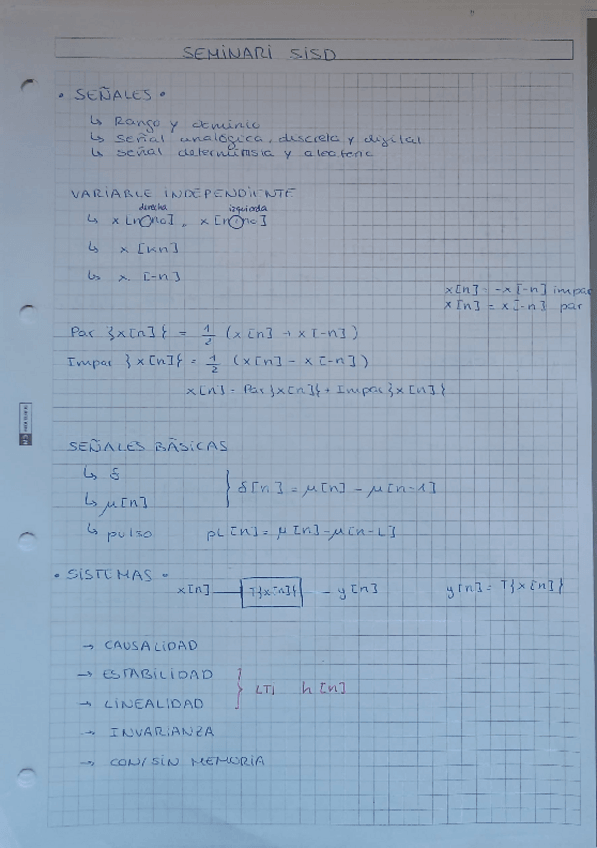 SEMINARI SISD
• SEÑALES •
↳ Rango y dominio
↳ Señal analógica, discreta y digital
↳ señal determinsia y aleatoria
VARIABLE INDEPENDIENTE
derecha izquierda
↳ x[n-n0], x[n+n0]
↳ x[kn]
↳ x[-n]
x[n] = -x[-n] impar
x[n] = x[-n] par
Par }x[n]{ = 1/2 (x[n] + x[-n])
Impar }x[n]{ = 1/2 (x[n] - x[-n])
x[n] = Par}x[n]{ + Impar}x[n]{
SEÑALES BÁSICAS
↳ δ
↳ μ[n] } δ[n] = μ[n] - μ[n-1]
↳ pulso pL[n] = μ[n] - μ[n-L]
• SISTEMAS •
x[n] — T}x[n]{ — y[n] y[n] = T}x[n]{
→ CAUSALIDAD
→ ESTABILIDAD
→ LINEALIDAD } LTI h[n]
→ INVARIANZA
→ CON/SIN MEMORIA